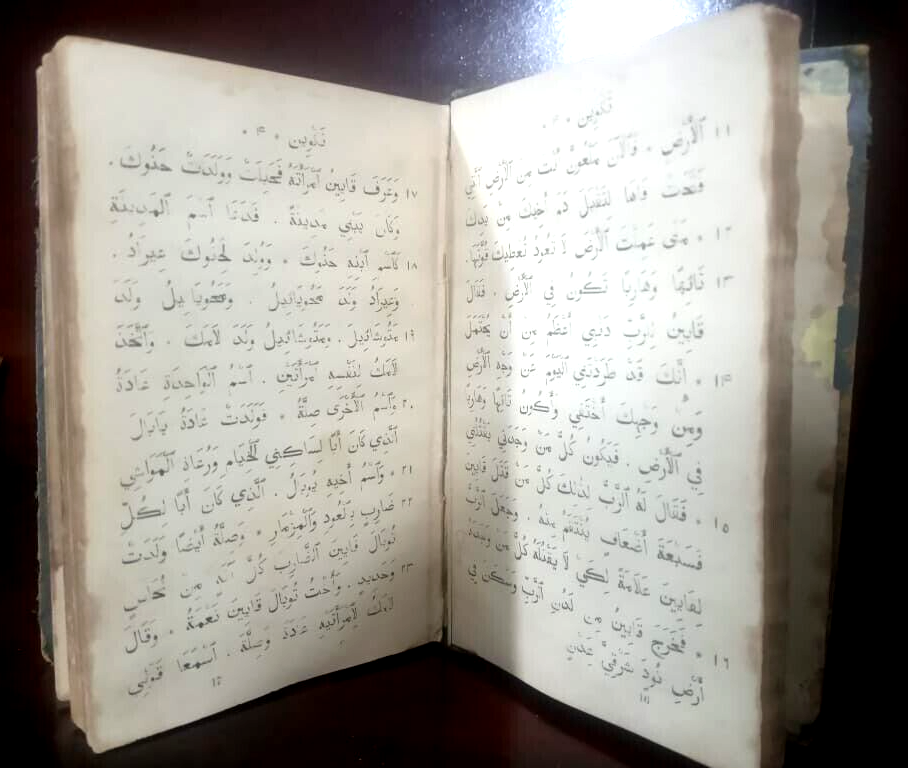 تَكْوِين
١١ ٱلْأَرْضِ * فَٱلْآنَ مَلْعُونٌ أَنْتَ مِنَ ٱلْأَرْضِ ٱلَّتِي
فَتَحَتْ فَاهَا لِتَقْبَلَ دَمَ أَخِيكَ مِنْ يَدِكَ
١٢ * مَتَى عَمِلْتَ ٱلْأَرْضَ لَا تَعُودُ تُعْطِيكَ قُوَّتَهَا.
١٣ تَائِهًا وَهَارِبًا تَكُونُ فِي ٱلْأَرْضِ * فَقَالَ
قَايِينُ لِلرَّبِّ ذَنْبِي أَعْظَمُ مِنْ أَنْ يُحْتَمَلَ
١٤ * إِنَّكَ قَدْ طَرَدْتَنِي ٱلْيَوْمَ عَنْ وَجْهِ ٱلْأَرْضِ
وَمِنْ وَجْهِكَ أَخْتَفِي وَأَكُونُ تَائِهًا وَهَارِبًا
فِي ٱلْأَرْضِ . فَيَكُونُ كُلُّ مَنْ وَجَدَنِي يَقْتُلُنِي
١٥ * فَقَالَ لَهُ ٱلرَّبُّ لِذٰلِكَ كُلُّ مَنْ قَتَلَ قَايِينَ
فَسَبْعَةَ أَضْعَافٍ يُنْتَقَمُ مِنْهُ . وَجَعَلَ ٱلرَّبُّ
لِقَايِينَ عَلَامَةً لِكَيْ لَا يَقْتُلَهُ كُلُّ مَنْ وَجَدَهُ.
١٦ * فَخَرَجَ قَايِينُ مِنْ لَدُنِ ٱلرَّبِّ وَسَكَنَ فِي
أَرْضِ نُودٍ شَرْقِيَّ عَدْنٍ
تَكْوِين * ٤ *
١٧ وَعَرَفَ قَايِينُ ٱمْرَأَتَهُ فَحَبِلَتْ وَوَلَدَتْ حَنُوكَ.
وَكَانَ يَبْنِي مَدِينَةً . فَدَعَا ٱسْمَ ٱلْمَدِينَةِ
١٨ كَٱسْمِ ٱبْنِهِ حَنُوكَ * وَوُلِدَ لِحَنُوكَ عِيرَادُ.
وَعِيرَادُ وَلَدَ مَحُويَائِيلَ . وَمَحُويَائِيلُ وَلَدَ
١٩ مَتُوشَائِيلَ . وَمَتُوشَائِيلُ وَلَدَ لَامَكَ . وَٱتَّخَذَ
لَامَكُ لِنَفْسِهِ ٱمْرَأَتَيْنِ . ٱسْمُ ٱلْوَاحِدَةِ عَادَةُ
٢٠ وَٱسْمُ ٱلْأُخْرَى صِلَّةُ * فَوَلَدَتْ عَادَةُ يَابَالَ
ٱلَّذِي كَانَ أَبًا لِسَاكِنِي ٱلْخِيَامِ وَرُعَاةِ ٱلْمَوَاشِي
٢١ * وَٱسْمُ أَخِيهِ يُوبَالُ . ٱلَّذِي كَانَ أَبًا لِكُلِّ
٢٢ ضَارِبٍ بِٱلْعُودِ وَٱلْمِزْمَارِ * وَصِلَّةُ أَيْضًا وَلَدَتْ
تُوبَالَ قَايِينَ ٱلضَّارِبَ كُلَّ آلَةٍ مِنْ نُحَاسٍ
٢٣ وَحَدِيدٍ . وَأُخْتُ تُوبَالَ قَايِينَ نَعْمَةُ * وَقَالَ
لَامَكُ لِٱمْرَأَتَيْهِ عَادَةَ وَصِلَّةَ . ٱسْمَعَا قَوْلِي